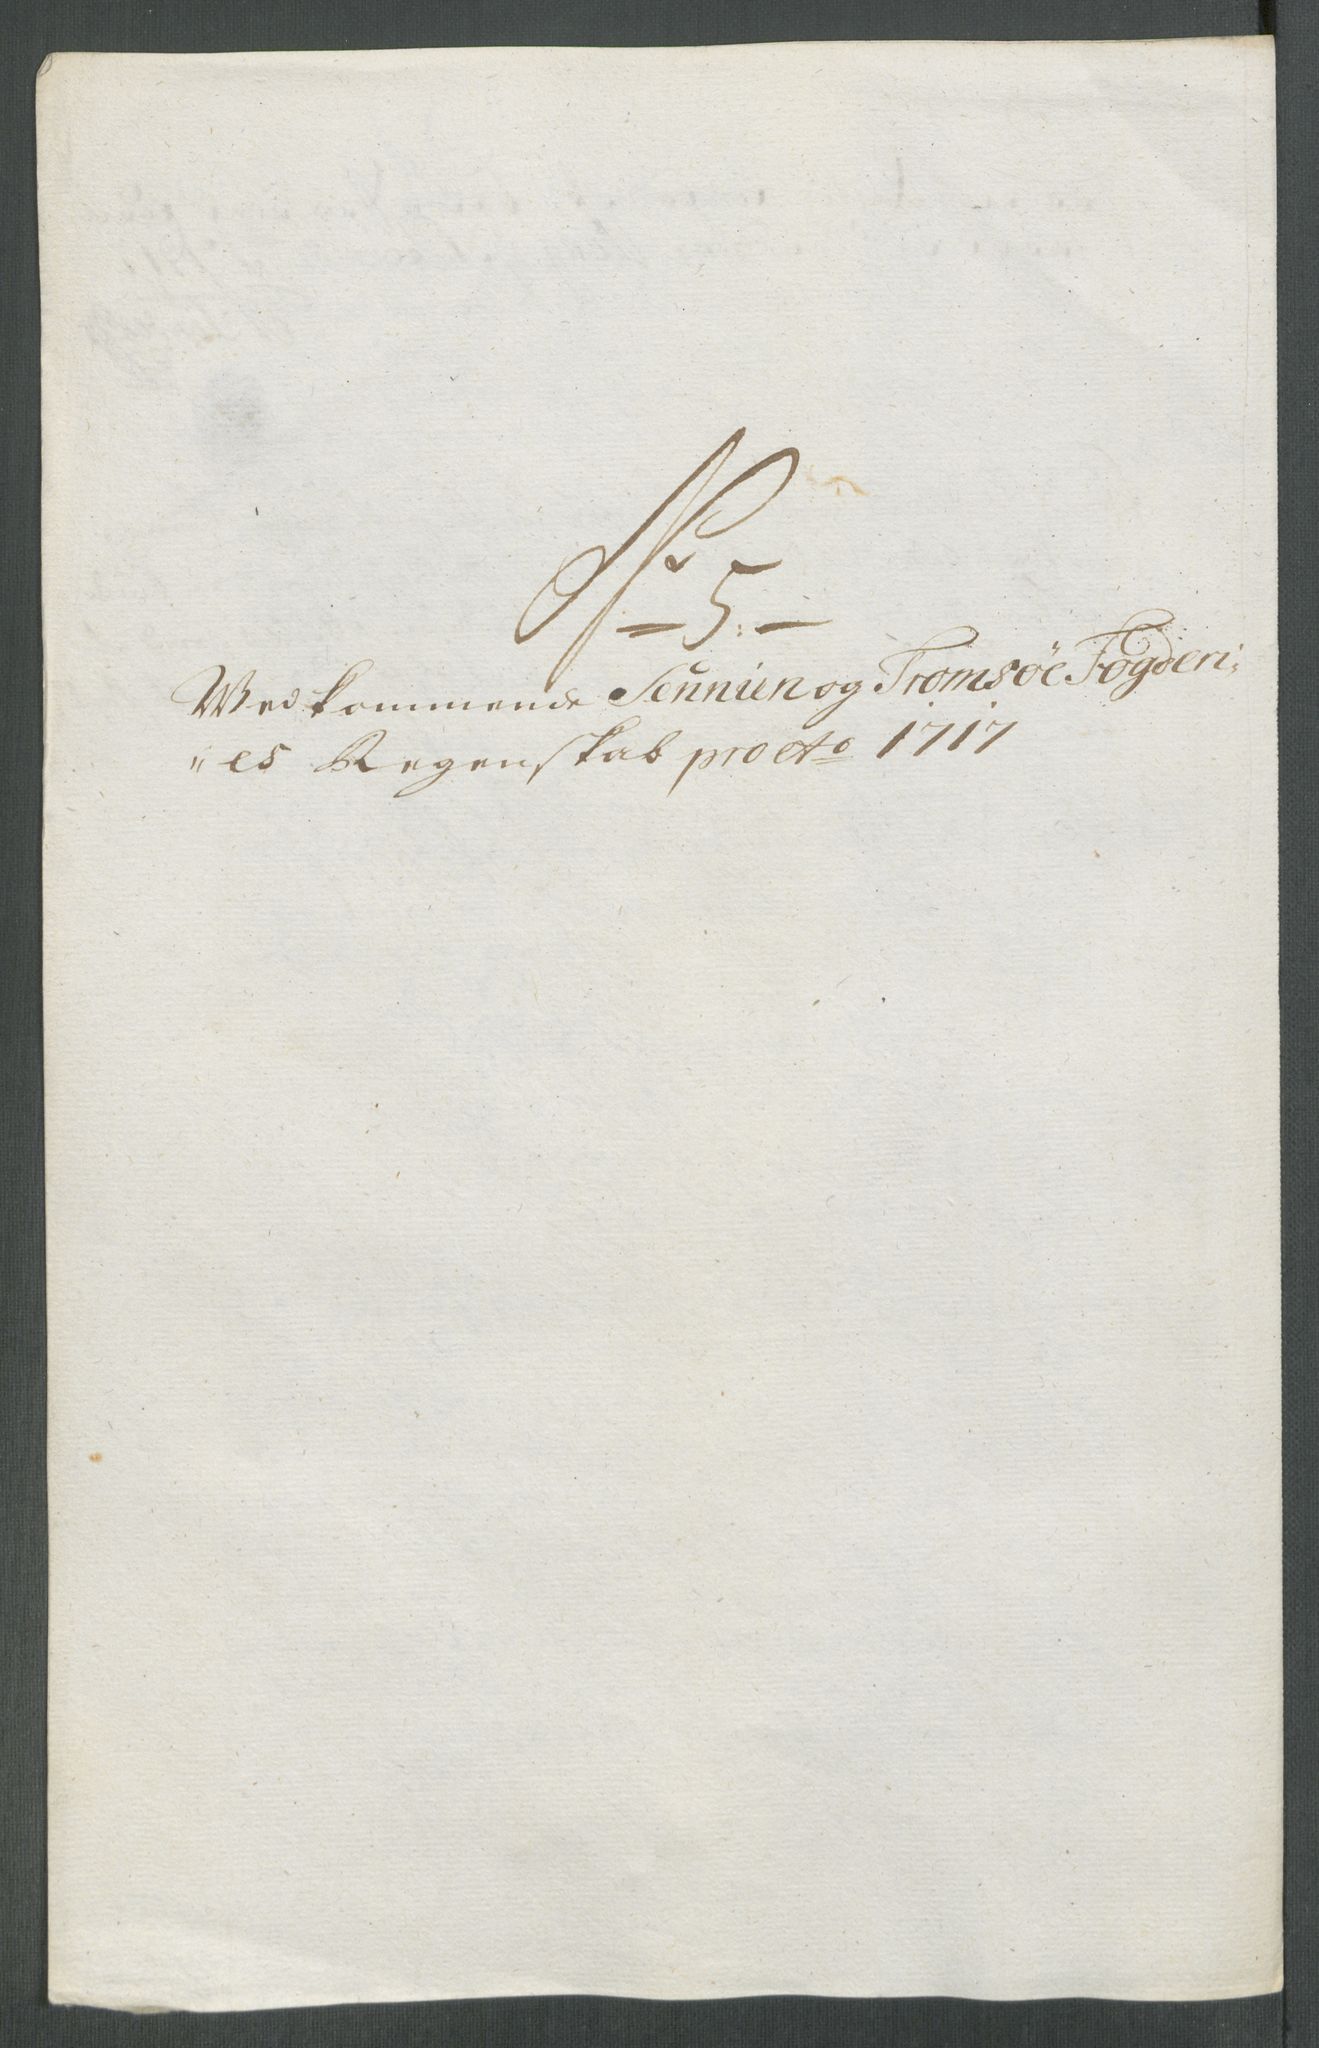 No
– 5. –
Wedkommende Sennien og Tromsøe Fogderi,
„es Regenskab pro Ao 1717